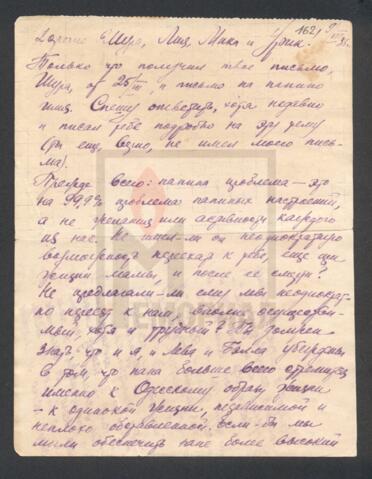 1621
Дорогие Шура, Лиц, Мика и Эрик.
Только что получили твое письмо,
Шура, от 25/III, и письмо на папино
имя. Спешу ответить, хотя недавно
и писал тебе подробно на эту тему
(ты еще, видно, не имел моего пись-
ма).
Прежде всего: папина проблема — это
на 99,9% проблема папиных настроений,
а не желания или активности каждого
из нас. Не имел-ли он неоднократно
возможность переехать к тебе, еще при
жизни мамы, и после ее смерти?
Не предлагали-ли ему мы неоднократ-
но переезд к нам, вполне осуществи-
мый, хотя и трудный? Ты должен
знать что и я, и Лева и Белла убеждены
в том, что папа больше всего стремится
именно к Одесскому образу жизни
— к одинокой жизни, независимой и
неплохо обставленной. Если-бы мы
могли обеспечить папе более высокий